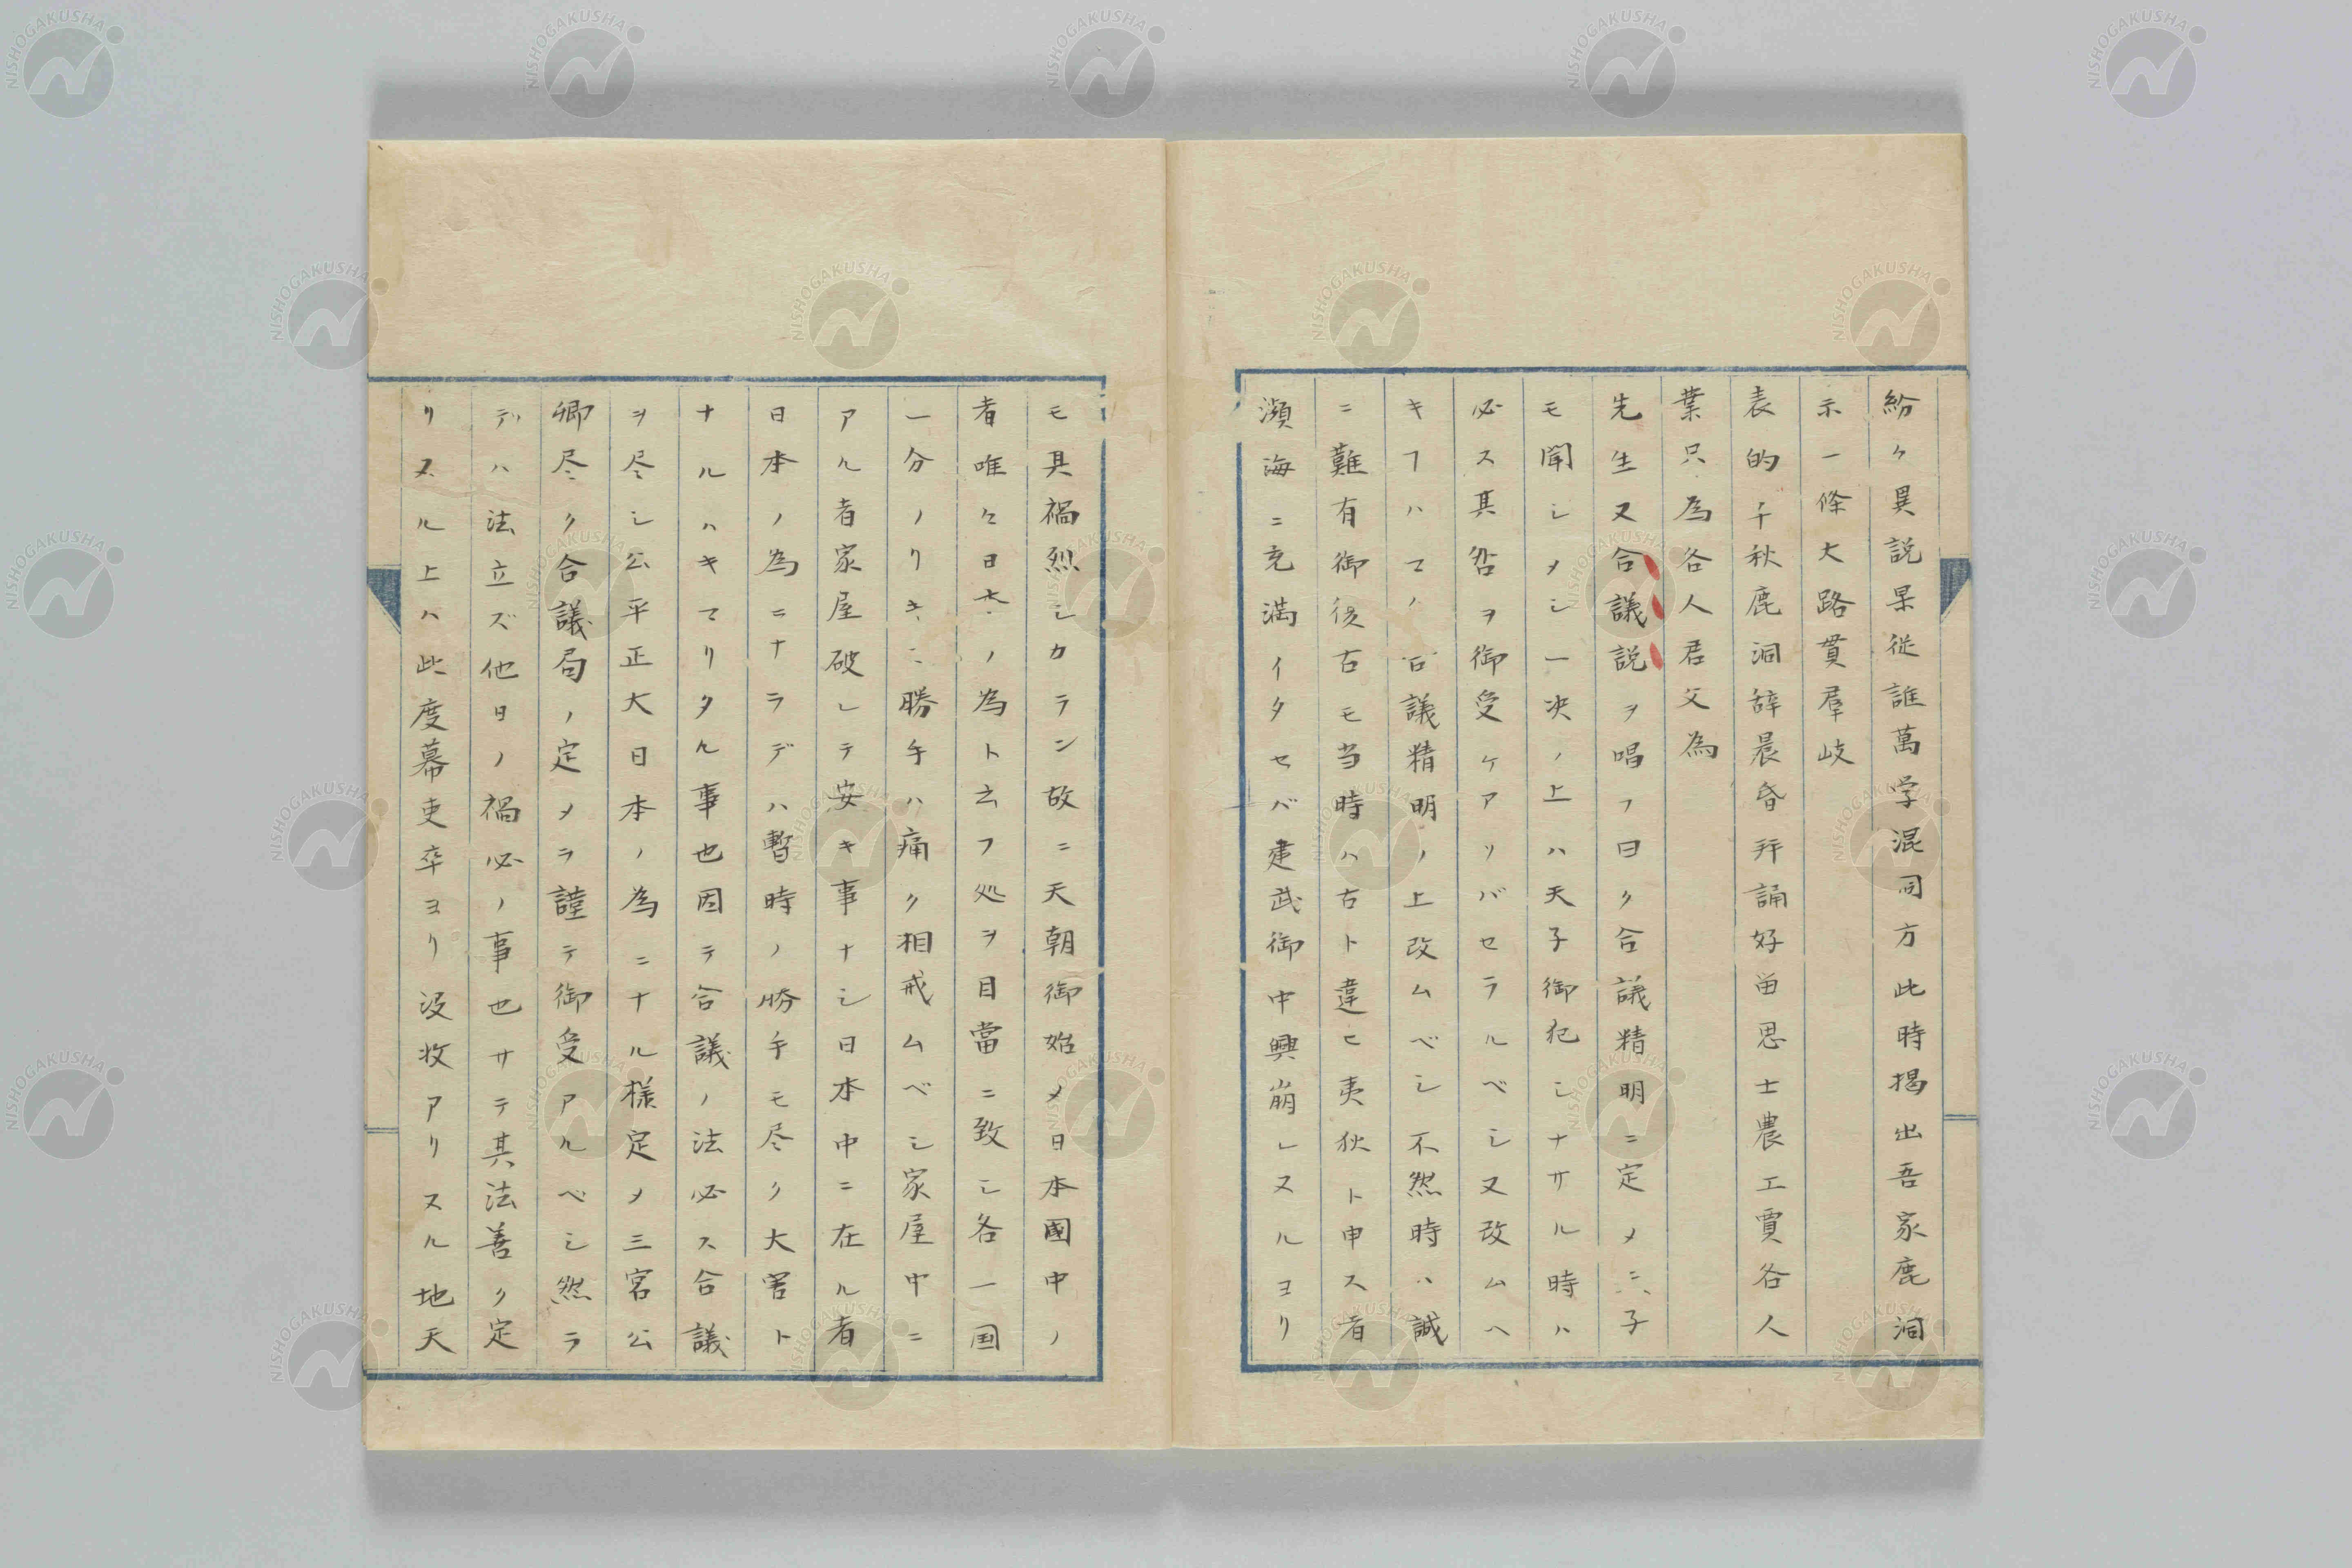 紛々異説果従誰萬学混同方此時掲出吾家鹿洞
示一條大路貫羣岐
表的千秋鹿洞辞晨昏拜誦好
思士農工賈各人
業只為各人君父為
先生又合議説ヲ唱フ曰ク合議精明ニ定メニ六子
モ聞シメシ一决ノ上ハ天子御犯シナサル時ハ
必ス其咎ヲ御受ケアソバセラルベシ又改ムヘ
キフハマノ合議精明ノ上改ムベシ不然時ハ誠
ニ難有御後古モ当時ハ古ト違ヒ夷狄ト申ス者
瀕海ニ充満イタセバ建武御中興崩レスルヨリ
モ其禍烈シカラン故ニ天朝御始メ日本國中ノ
者唯々日本ノ為ト云フ処ヲ目當ニ致シ各一国
一分ノリキミ勝手ハ痛ク相戒ムベシ家屋中ニ
アル者家屋破レテ安キ事ナシ日本中ニ在ル者
日本ノ為ニナラデハ暫時ノ勝手モ尽ク大害ト
ナルハキマリタル事也因テ合議ノ法必ス合議
ヲ尽シ公平正大日本ノ為ニナル様定メ三宮公
卿尽ク合議局ノ定メヲ謹テ御受アルベシ然ラ
デハ法立ズ他日ノ禍必ノ事也サテ其法善ク定
リヌル上ハ此度幕吏卒ヨリ没收アリヌル地天
NISHOGAKUSHA